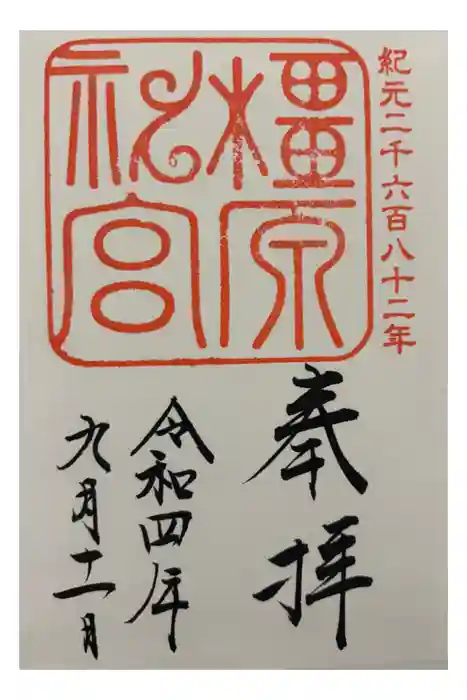 紀元二千六百八十二年
橿原
神宮
奉拝
令和四年
九月十一日